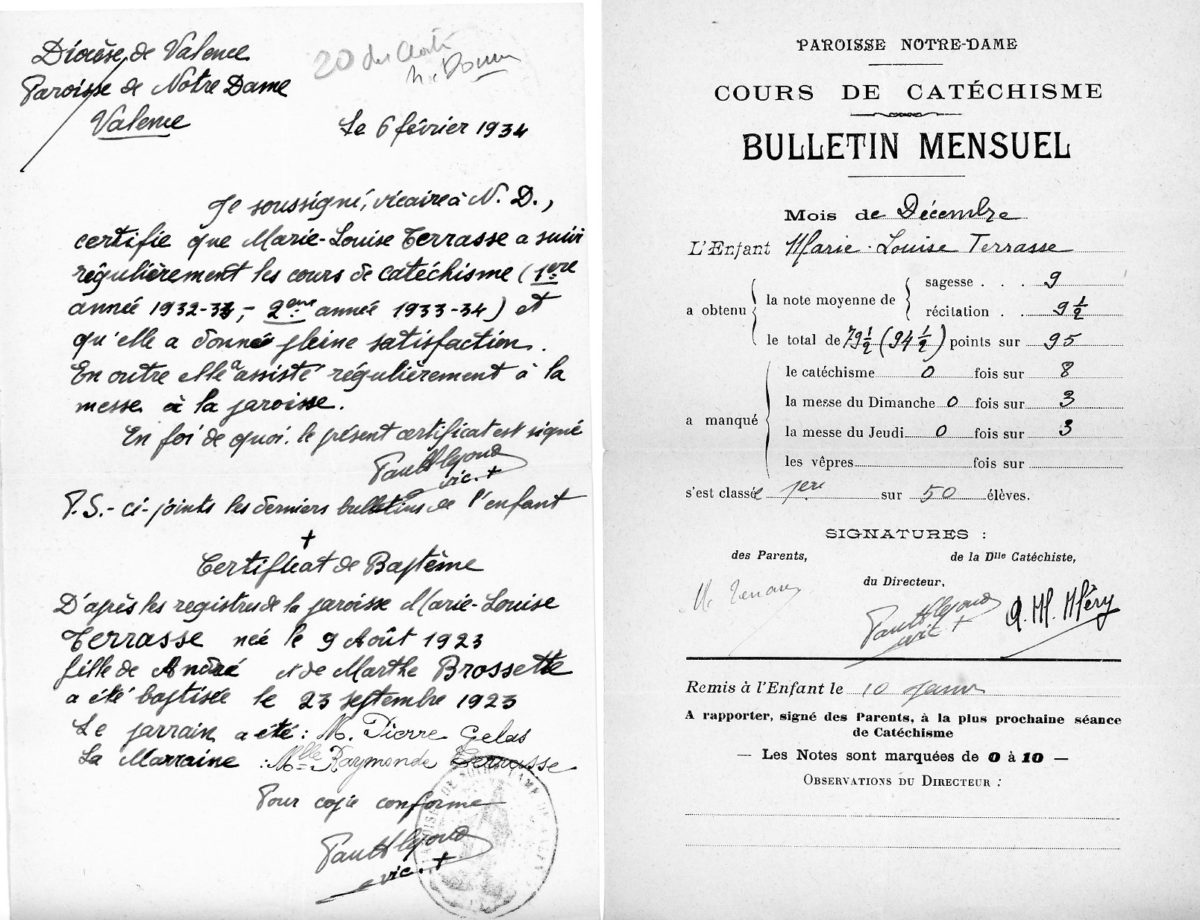 Diocèse de Valence
Paroisse de Notre Dame
Valence
20
Le 6 février 1934
Je soussigné, vicaire à N. D.,
certifie que Marie-Louise Terrasse a suivi
régulièrement les cours de catéchisme (1ère
année 1932-33, - 2ème année 1933-34) et
qu'elle a donné pleine satisfaction.
En outre elle a assisté régulièrement à la
messe à la paroisse.
En foi de quoi, le présent certificat est signé
vic. +
P.S.- ci-joints les derniers bulletins de l'enfant
+
Certificat de Baptême
D'après les registres de la paroisse Marie-Louise
Terrasse née le 9 Août 1923
fille de André et de Marthe Brossette
a été baptisée le 23 septembre 1923
Le parrain a été : M. Pierre Gelas
La Marraine : Mlle Raymonde Terrasse
Pour copie conforme
vic. +
PAROISSE NOTRE-DAME
COURS DE CATÉCHISME
BULLETIN MENSUEL
Mois de Décembre
L'Enfant Marie-Louise Terrasse
a obtenu { la note moyenne de { sagesse . . . 9
récitation . . 9 1/2
le total de 79 1/2 (94 1/2) points sur 95
a manqué { le catéchisme 0 fois sur 8
la messe du Dimanche 0 fois sur 3
la messe du Jeudi 0 fois sur 3
les vêpres fois sur
s'est classée 1ere sur 50 élèves.
SIGNATURES :
des Parents, de la Dlle Catéchiste,
du Directeur,
A. M. Méry
vic +
Remis à l'Enfant le 10 Janv
A rapporter, signé des Parents, à la plus prochaine séance
de Catéchisme
— Les Notes sont marquées de 0 à 10 —
OBSERVATIONS DU DIRECTEUR :